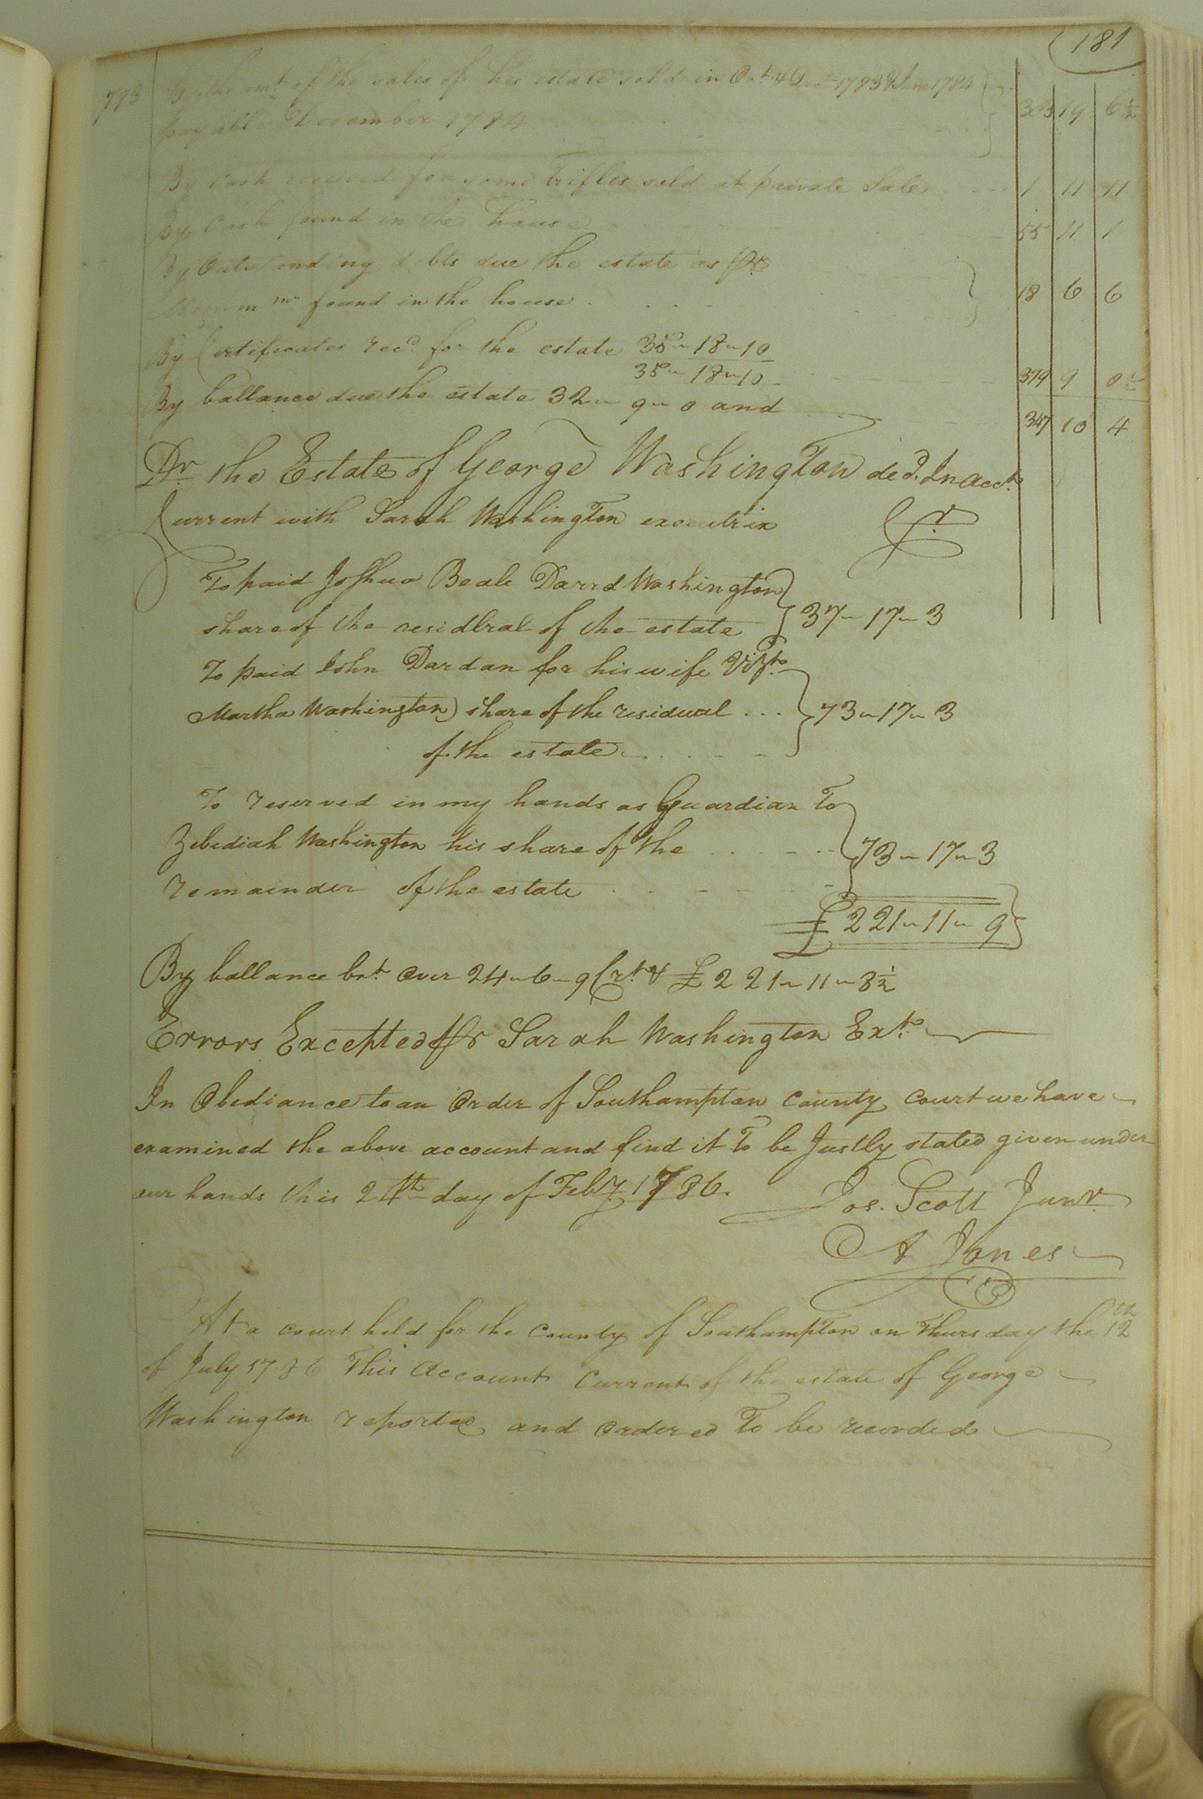 181
1783 By the amt. of the sales of his estate sold in Oct. & Dec. 1783 & June 1784
payable December 1784 303 19 6½
By Cash received for some trifles sold at private Sale 1 11 11
By Cash found in the house 55 11 1
By Outstanding debts due the estate as pr
found in the house 18 6 6
By Certificates recd. for the estate 35 - 18 - 10
35 - 18 - 10 379 9 0½
By ballance due the estate 32 - 9 - 0 and 347 10 4
Dr. the Estate of George Washington decd. In acct.
Current with Sarah Washington executrix Cr.
To paid Joshua Beale Darrd Washington
share of the residLral of the estate 37 - 17 - 3
To paid John Dardan for his wife Vizt.
Martha Washington) share of the residual ... 73 - 17 - 3
of the estate
To reserved in my hands as Guardian To
Zebediah Washington his share of the 73 - 17 - 3
remainder of the estate
£ 221 - 11 - 9
By ballance brt. over 24 - 6 - 9 Crt. & £ 221 - 11 - 8½
Errors Excepted pr Sarah Washington Exx.
In Obediance to an Order of Southampton County Court we have
examined the above account and find it To be Justly stated given under
our hands this 24th day of Feby 1786.
Jos. Scott Junr.
A Jones
At a court held for the County of Southampton on Thursday the 12th
of July 1786 This Account Current of the estate of George
Washington reported and ordered To be recorded